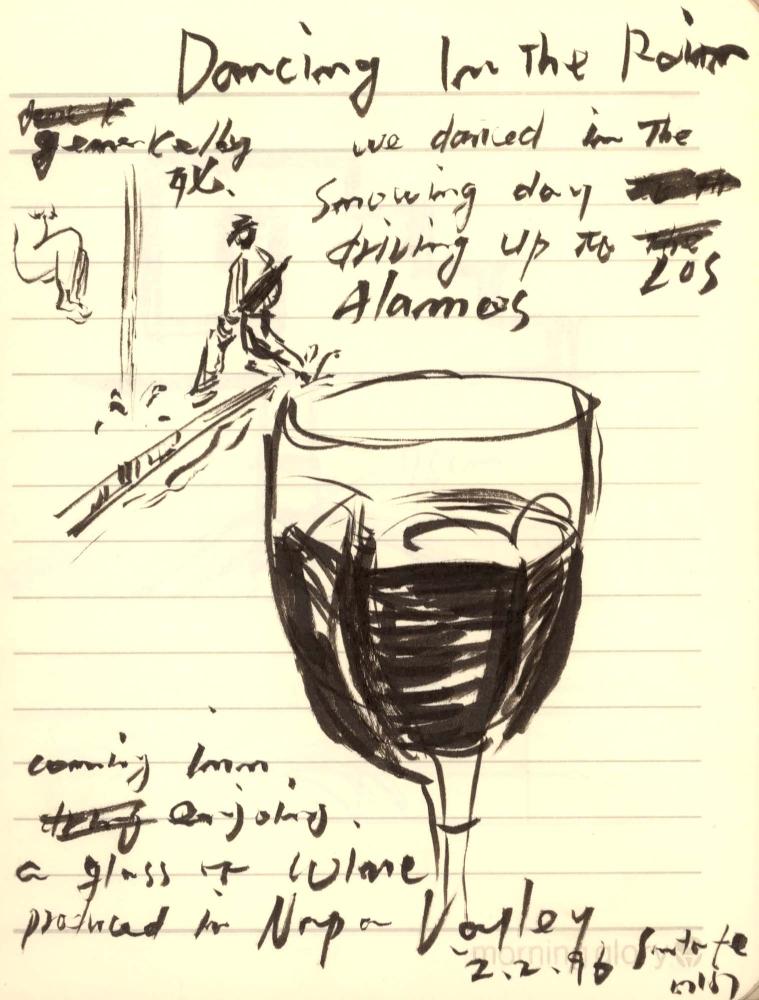 Dancing In the Rain
gene kelly
we danced in The
Snowing day
driving up to
Los
Alamos
coming Inn
enjoing.
a glass of Wine
produced in Napa Vaylley
2.2.96 Santa fe
morning glory